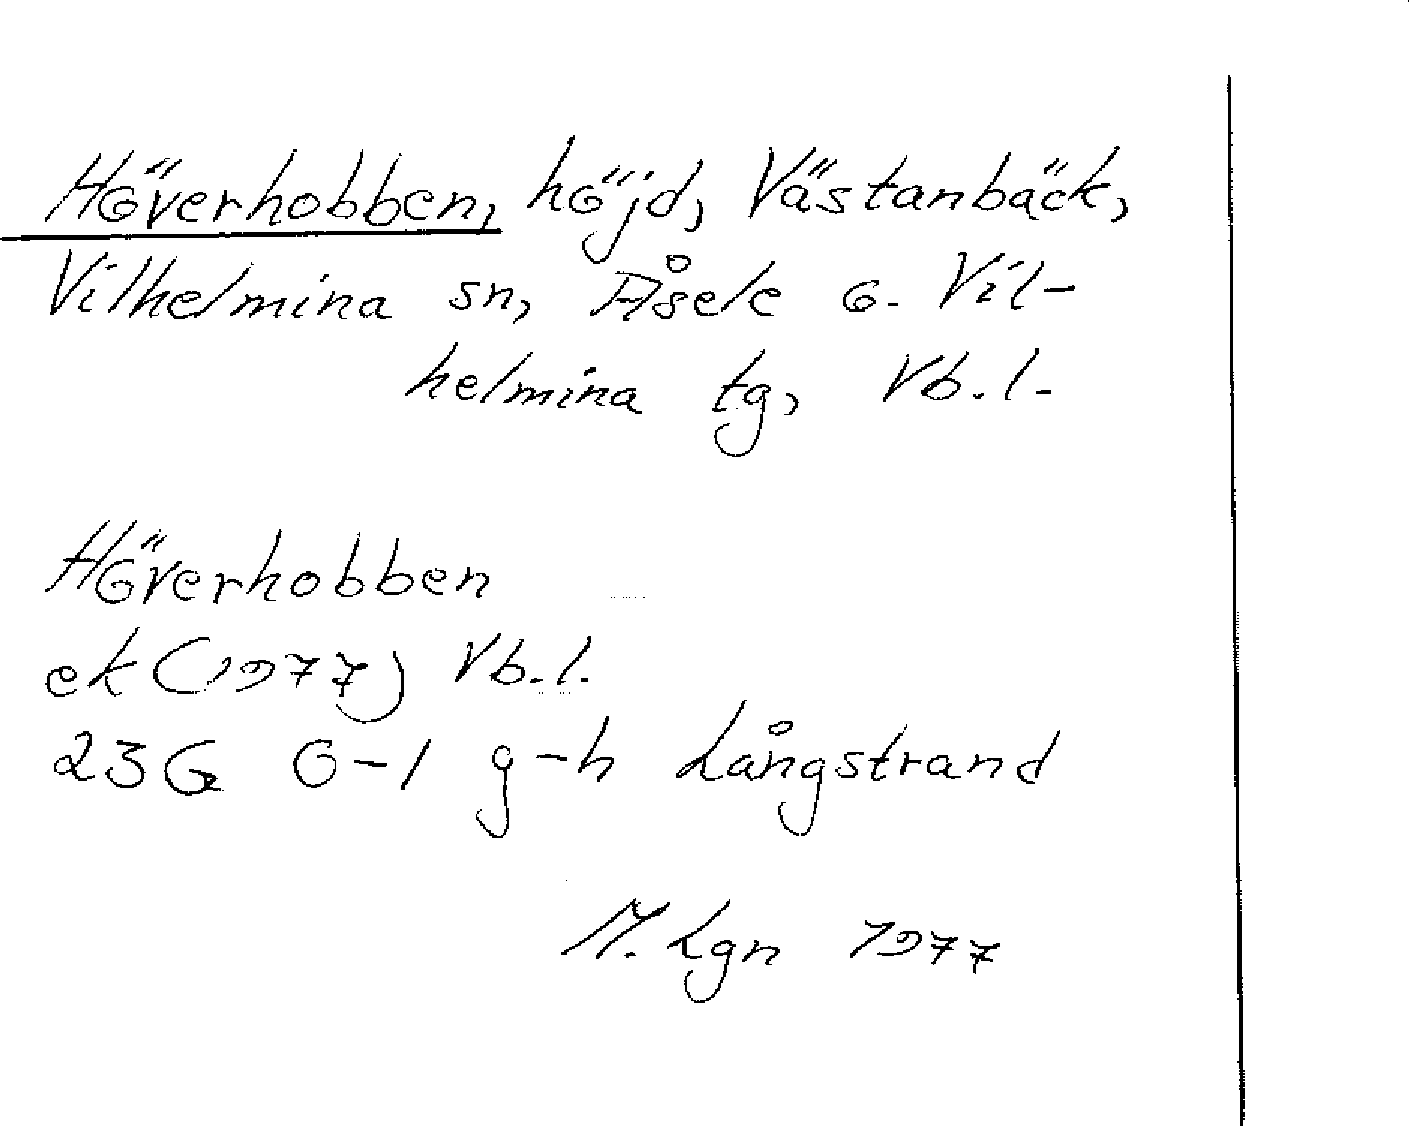 Höverhobben, höjd, Västanbäck,
Vilhelmina sn, Åsele o. Vil-
helmina tg, Vb. l.
Höverhobben
ek (1977) Vb. l.
23G 0-1 g-h Långstrand
M. Lgn 1977